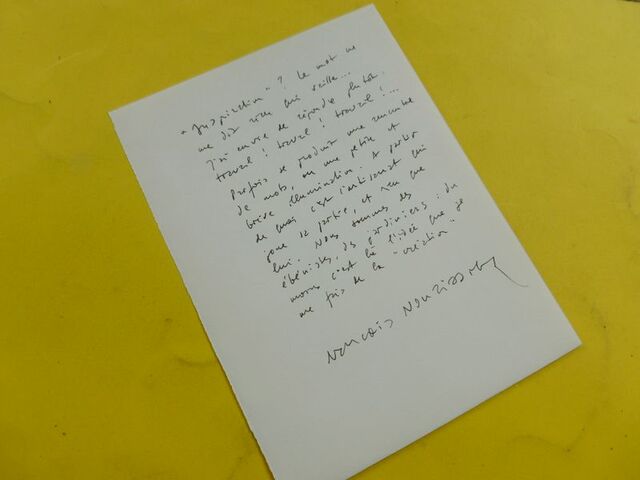 "Inspiration" ? Le mot ne
me dit rien qui vaille...
J'ai envie de répondre plutôt :
travail ! travail ! travail !...
Parfois se produit une rencontre
de mots, ou une petite et
brève illumination. A partir
de quoi c'est l'artisanat qui
joue sa partie, et rien que
lui. Nous sommes des
ébénistes, des jardiniers : du
moins c'est là l'idée que je
me fais de la "création".
François Nourissier